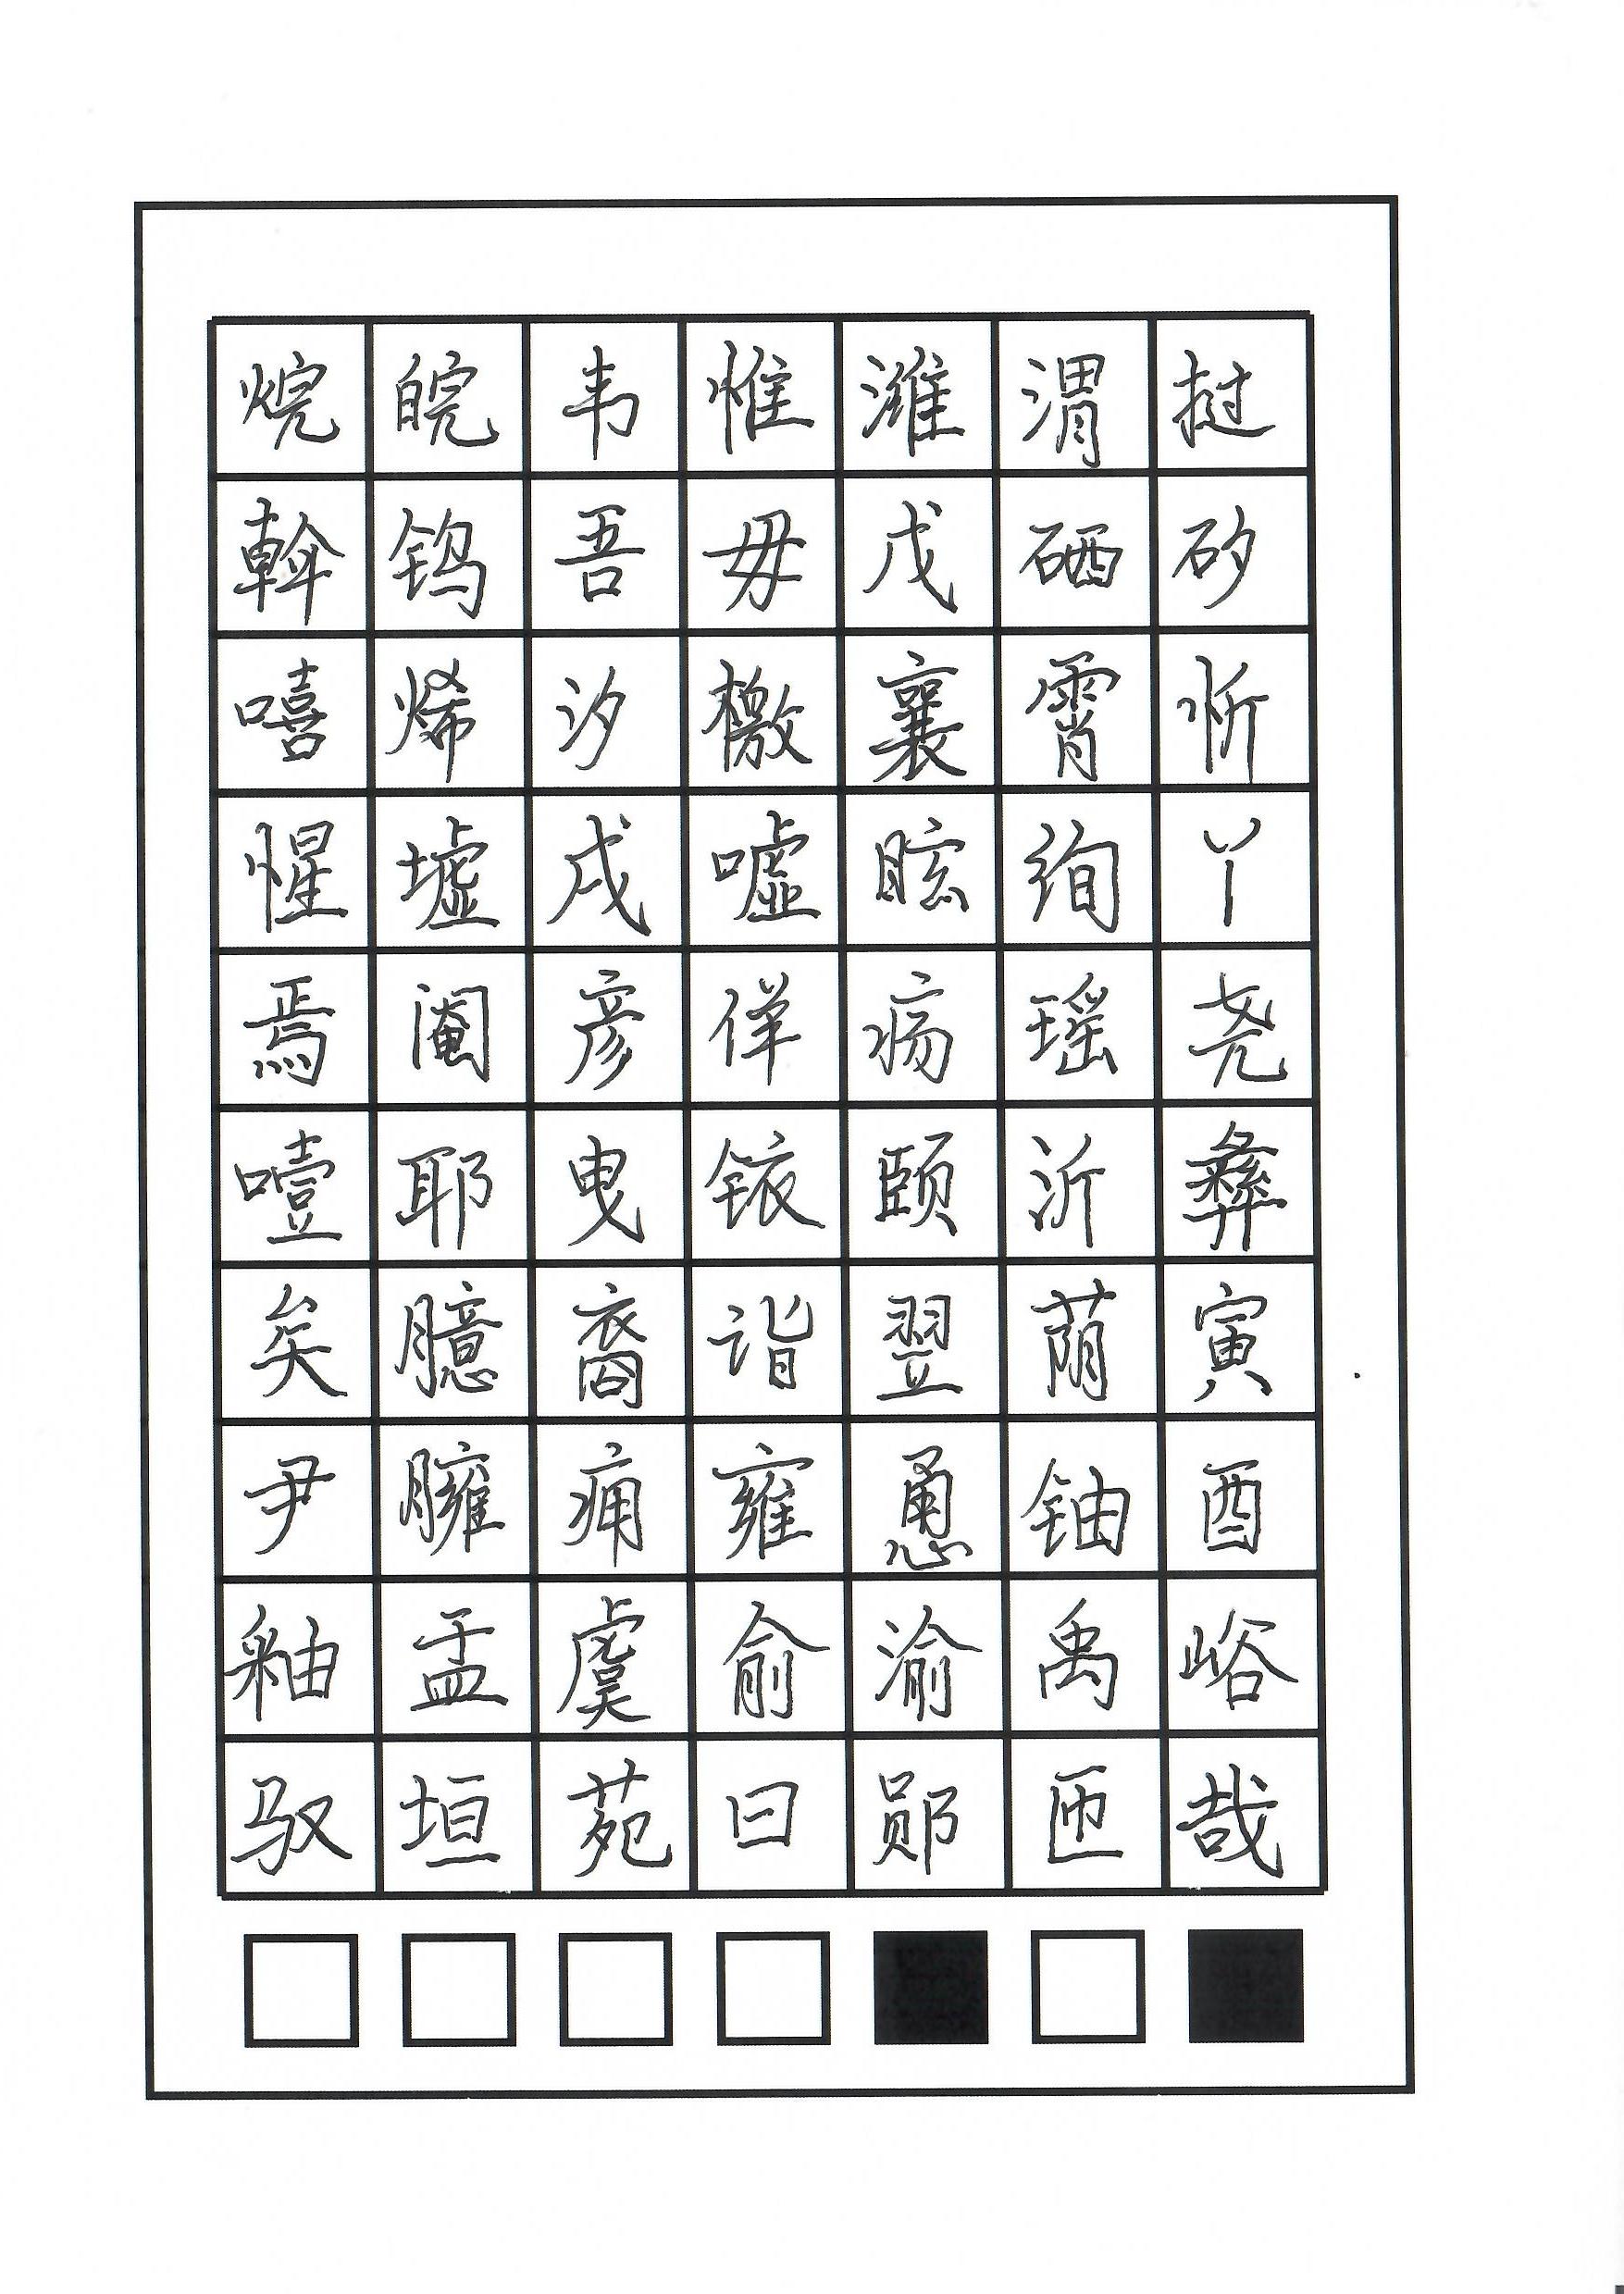 烷皖韦惟潍渭挝
斡钨吾毋戊硒矽
嘻烯汐檄襄霄忻
惺墟戌嘘眩绚丫
焉阉彦佯疡瑶尧
噎耶曳铱颐沂彝
矣臆裔诣翌荫寅
尹臃痈雍恿铀酉
釉盂虞俞渝禹峪
驭垣苑曰郧匝哉